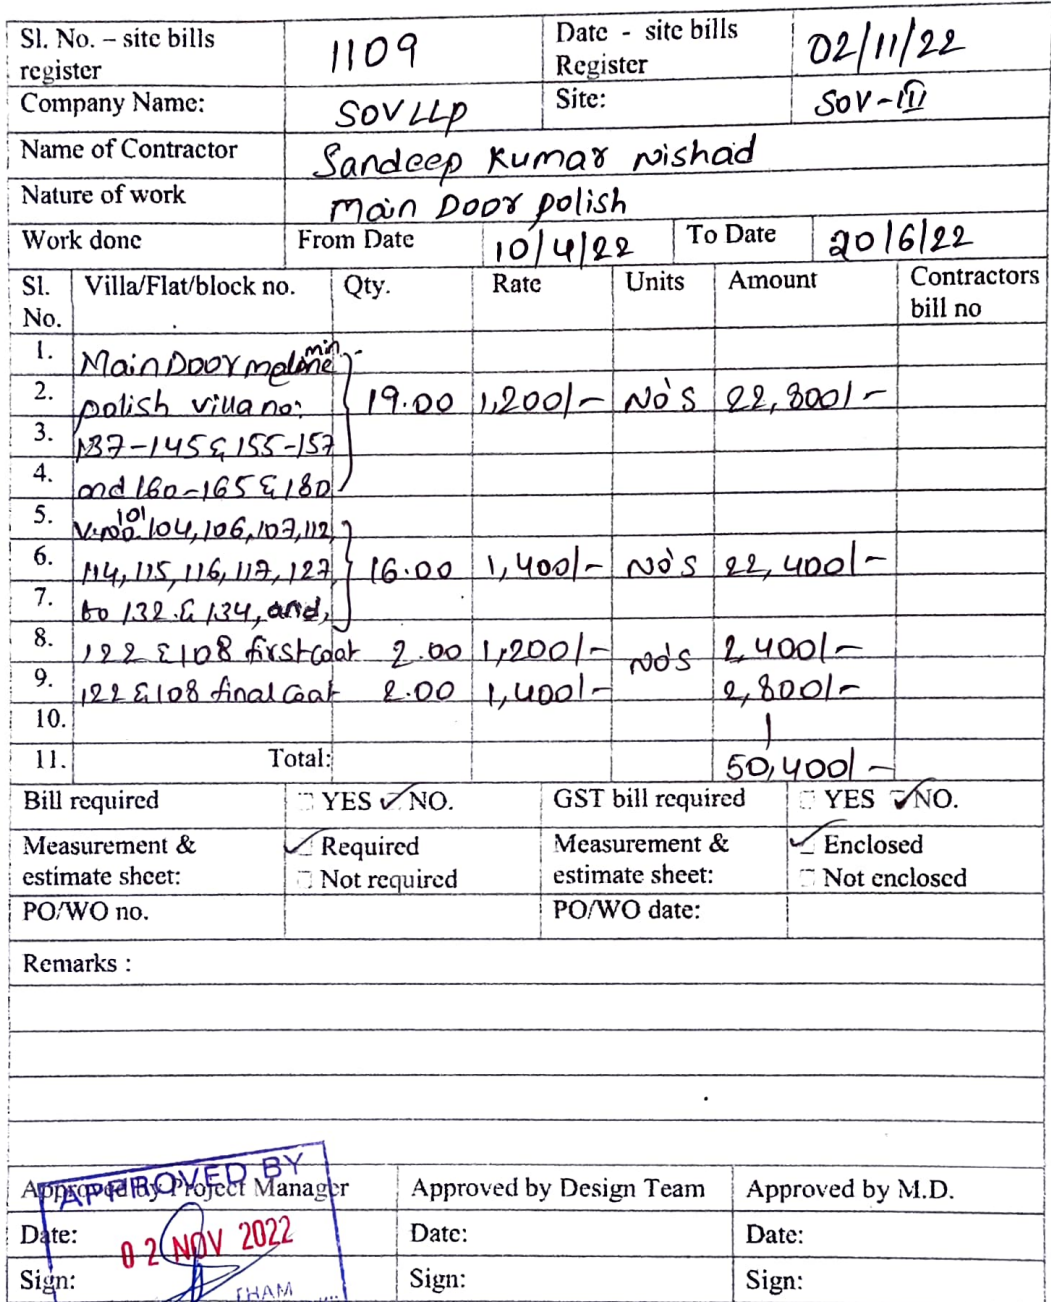 Sl. No. – site bills register 1109 Date - site bills Register 02/11/22
Company Name: SOVLLP Site: SOV-III
Name of Contractor Sandeep Kumar Nishad
Nature of work Main Door polish
Work done From Date 10/4/22 To Date 20/6/22
Sl. No. Villa/Flat/block no. Qty. Rate Units Amount Contractors bill no
1. Main Door
2. polish villa no: 19.00 1,200/- No's 22,800/-
3. 137-145 & 155-157
4. and 160-165 & 180
5. V.no. 101 104, 106, 107, 112,
6. 114, 115, 116, 117, 127, 16.00 1,400/- No's 22,400/-
7. to 132 & 134, and,
8. 122 & 108 first coat 2.00 1,200/- No's 2,400/-
9. 122 & 108 final coat 2.00 1,400/- 2,800/-
10.
11. Total: 50,400/-
Bill required YES NO. GST bill required YES NO.
Measurement & estimate sheet: Required Measurement & estimate sheet: Enclosed
Not required Not enclosed
PO/WO no. PO/WO date:
Remarks :
APPROVED BY
Approved by Project Manager Approved by Design Team Approved by M.D.
Date: 02 NOV 2022 Date: Date:
Sign: Sign: Sign: